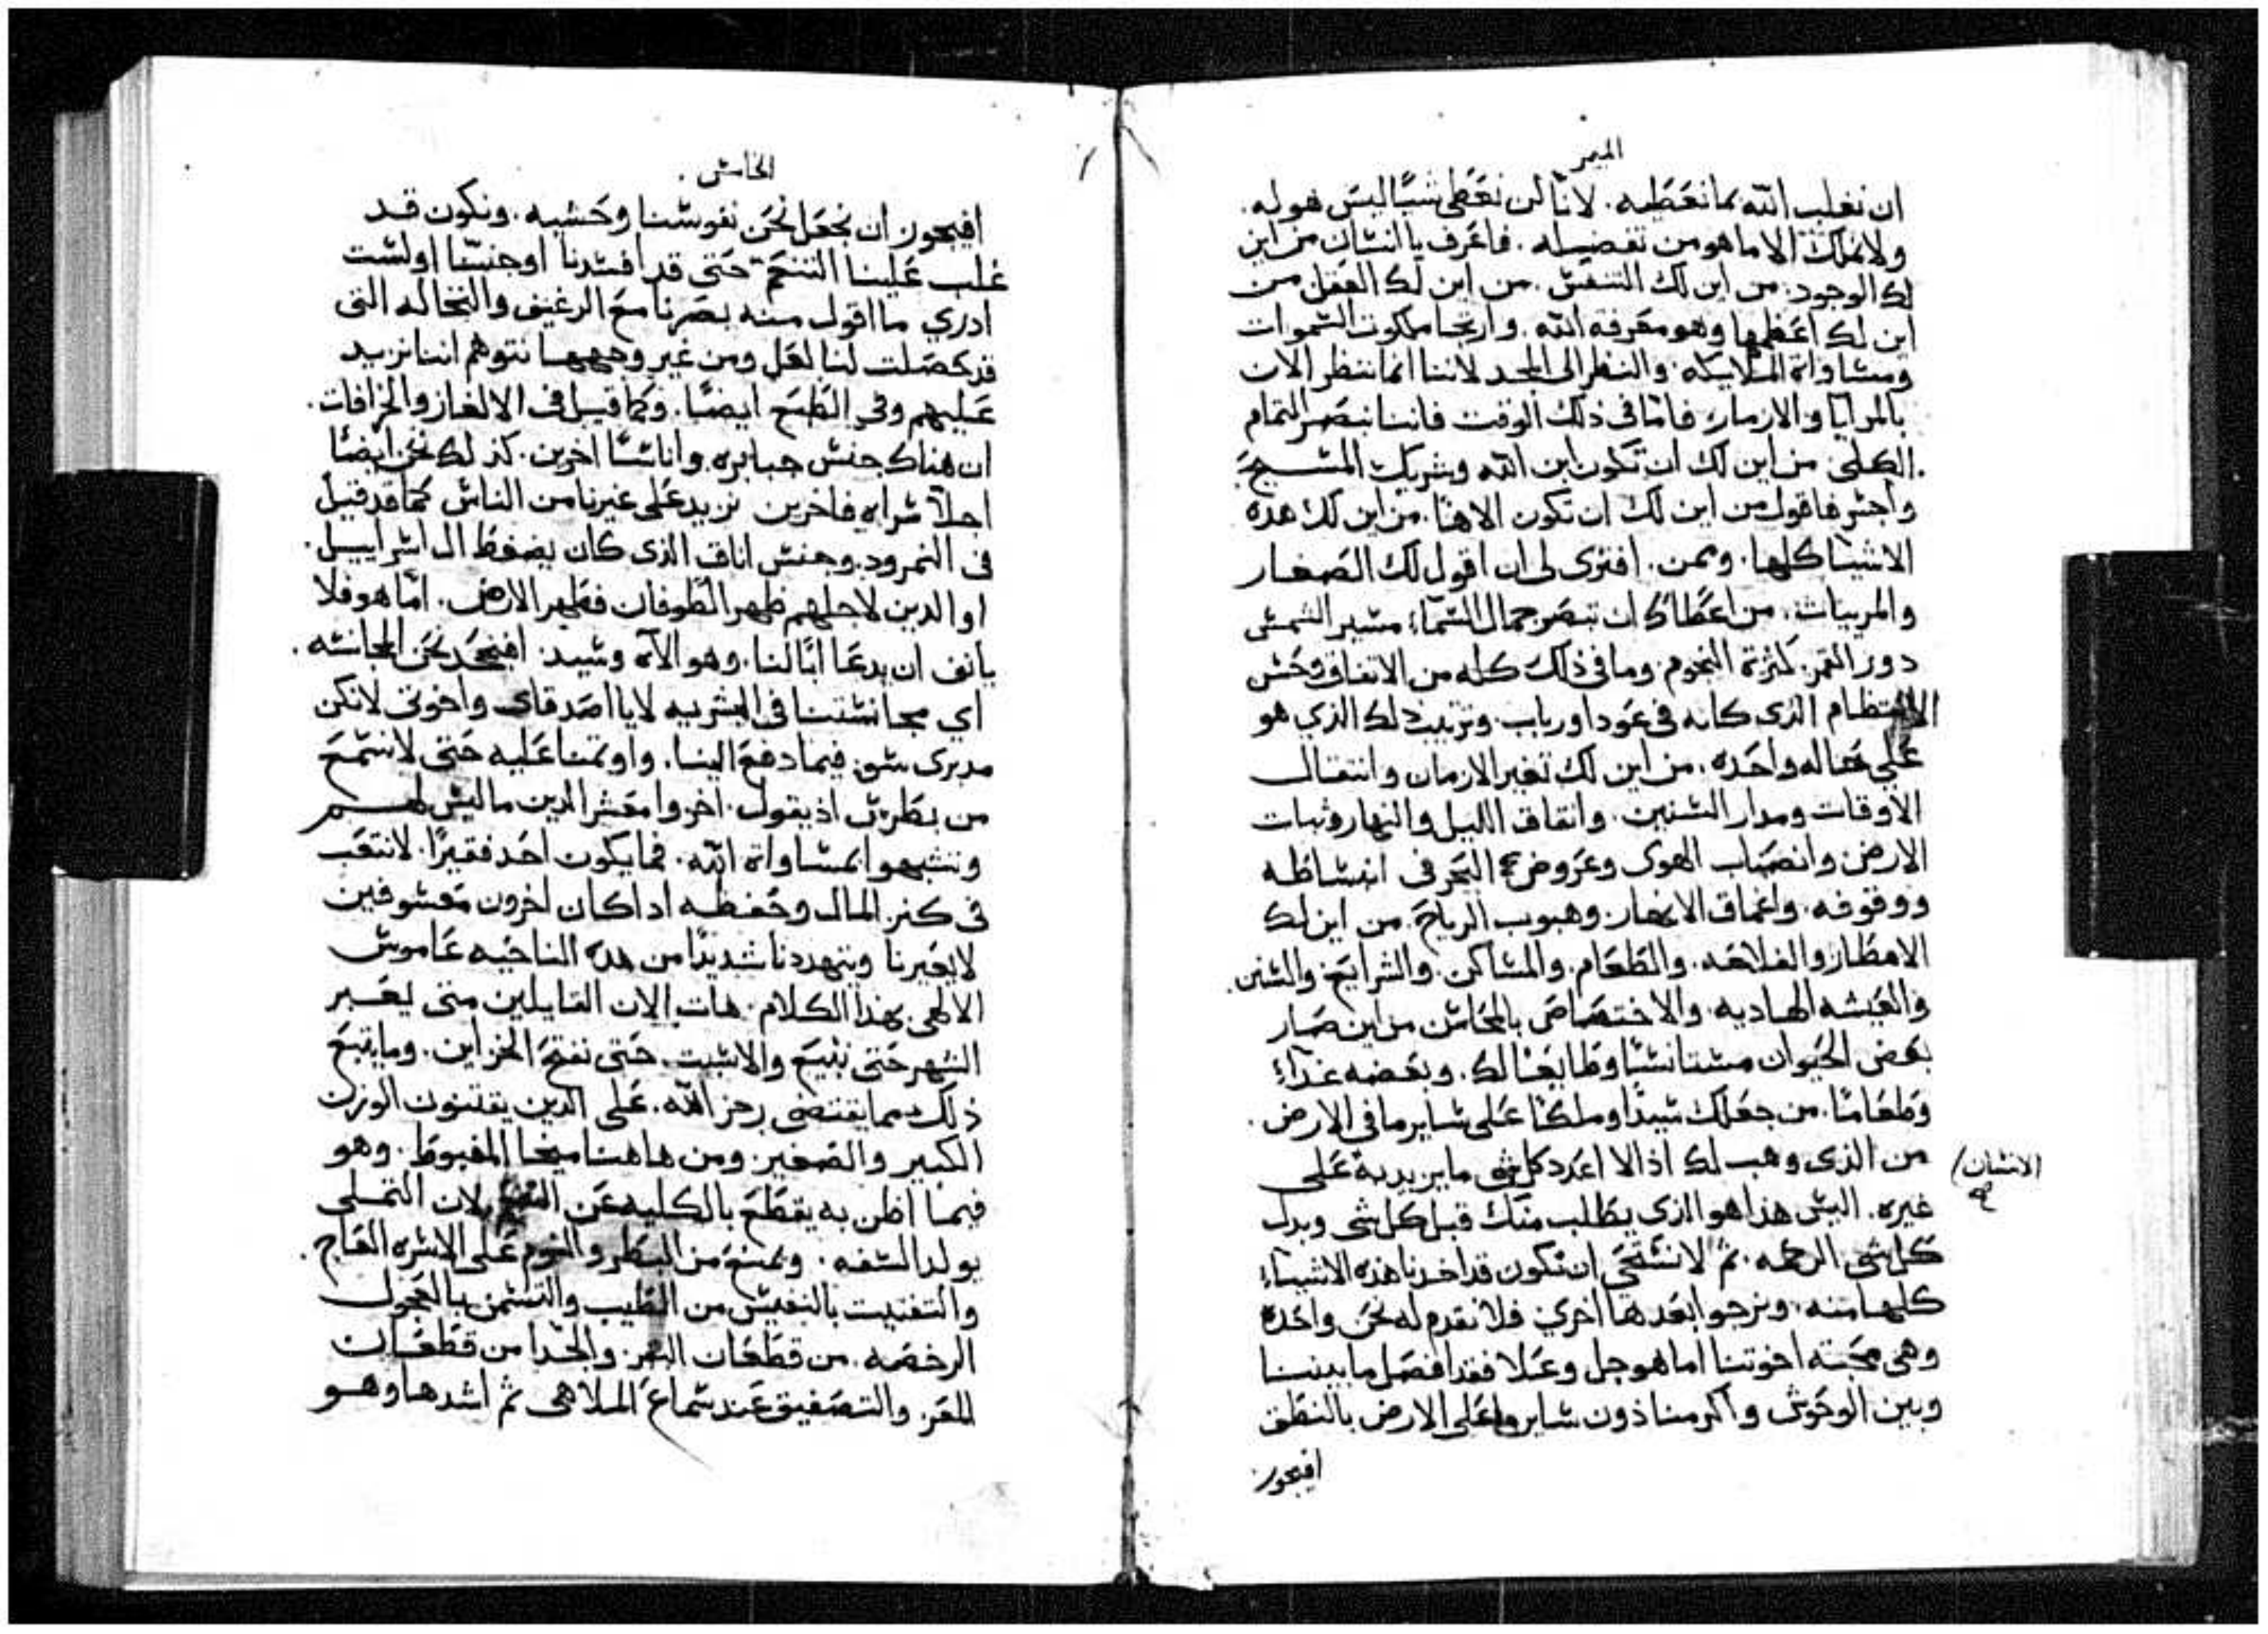 الميمر
ان نغلب الله بما نعطيه. لانا لن نعطى شيًا ليس هو له.
ولا نملك الا ما هو من تفضيله. فاعرف يا انسان من اين
لك الوجود. من اين لك التنفس. من اين لك العقل من
اين لك اعظمها وهو معرفة الله. وارتجا ملكوت السموات
ومساواة الملايكه. والنظر الى المجد لاننا انما ننظر الان
بالمرايا والارماز، فاما فى ذلك الوقت فاننا نبصر التمام
الكلى من اين لك ان تكون ابن الله وشريك المسيح.
واجسر فاقول من اين لك ان تكون الاهًا. من اين لك هذه
الاشيا كلها. وبمن. افترى لى ان اقول لك الصغار
والمريات. من اعطاك ان تبصر جمال السماء. مسير الشمس
دور القمر. كثرة النجوم. وما فى ذلك كله من الاتفاق وحس
الانتظام الذى كانه فى عود او رباب. وترتيب ذلك الذي هو
على حاله واحده. من اين لك تغير الازمان وانتقال
الاوقات ومدار السنين. واتفاق الليل والنهار وثبات
الارض وانصباب الهوى وعروض البحر فى انبساطه
ووقوفه. واعماق الانهار. وهبوب الرياح. من اين لك
الامطار والفلاحه. والطعام. والمساكن. والشرايع. والسنن.
والعيشه الهاديه. والاختصاص بالمجانس من اين صار
بعض الحيوان مستانسًا وطايعًا لك. وبعضه غذاء
وطعامًا. من جعلك سيدًا وملكًا على ساير ما فى الارض.
من الذى وهب لك اذ لا اعدد كل شى ما يزيد به على
الانسان
غيره. اليس هذا هو الذى يطلب منك قبل كل شى وبدل
كل شى الرحمه. ثم لا نستحى ان نكون قد اخدنا هذه الاشياء
كلها منه. ونرجوا بعدها اخرى فلا نقدم له نحن واحده
وهى محبته اخوتنا اما هو جل وعلا فقد افصل ما بيننا
وبين الوحوش واكرمنا دون ساير ما على الارض بالنطق
افيجوز
الخامس.
افيجوز ان نجعل نحن نفوسنا وحشيه. ونكون قد
غلب علينا التنعم حتى قد افسدنا او جننا او لست
ادري ما اقول منه بصرنا مع الرغيف والنخاله التى
قد حصلت لنا لعل ومن غير وجهها نتوهم اننا نزيد
عليهم وفى الطبع ايضًا. وكما قيل فى الالغاز والخرافات.
ان هناك جنس جبابره. واناسًا اخرين. كذلك نحن ايضًا
اجلا سراه فاخرين نزيد على غيرنا من الناس كما قد قيل
فى النمرود. وجنس اناق الذى كان يضغط ال اسراييل.
او الدين لاجلهم ظهر الطوفان فطهر الارض. اما هو فلا
يانف ان يدعا ابًا لنا. وهو الآه وسيد. افنجحد نحن المجانسه.
اي مجانستنا فى البشريه لا يا اصدقاى واخوتى لا نكن
مدبرى سو. فيما دفع الينا. واوتمنا عليه حتى لا نسمع
من بطرس اذ يقول. اخزوا معشر الدين ما ليس لهم
وتشبهوا بمساواة الله. فما يكون احد فقيرًا. لا نتعب
فى كنز المال وحفظه ادا كان اخرون معسوفين
لا يعيرنا ويتهددنا شديدًا من هده الناحيه عاموس
الالهى. بهذا الكلام. هات الان القايلين متى يعبر
الشهر حتى نبيع والاسبت. حتى نفتح الخزاين. وما يتبع
ذلك مما يقتضى رجز الله. على الدين يقتنون الوزن
الكبير والصغير. ومن هاهنا ميخا المغبوط. وهو
فيما اظن به يقطع بالكليه عن لان التملى
يولد السفه. ويمنع من البطر والنوم على الاسره العاج.
والتفتيت بالنفيس من الطيب والتسمن بالعجول
الرخصه. من قطعان البقر. والجدا من قطعان
المعز. والتصفيق عند سماع الملاهى ثم اشدها وهو